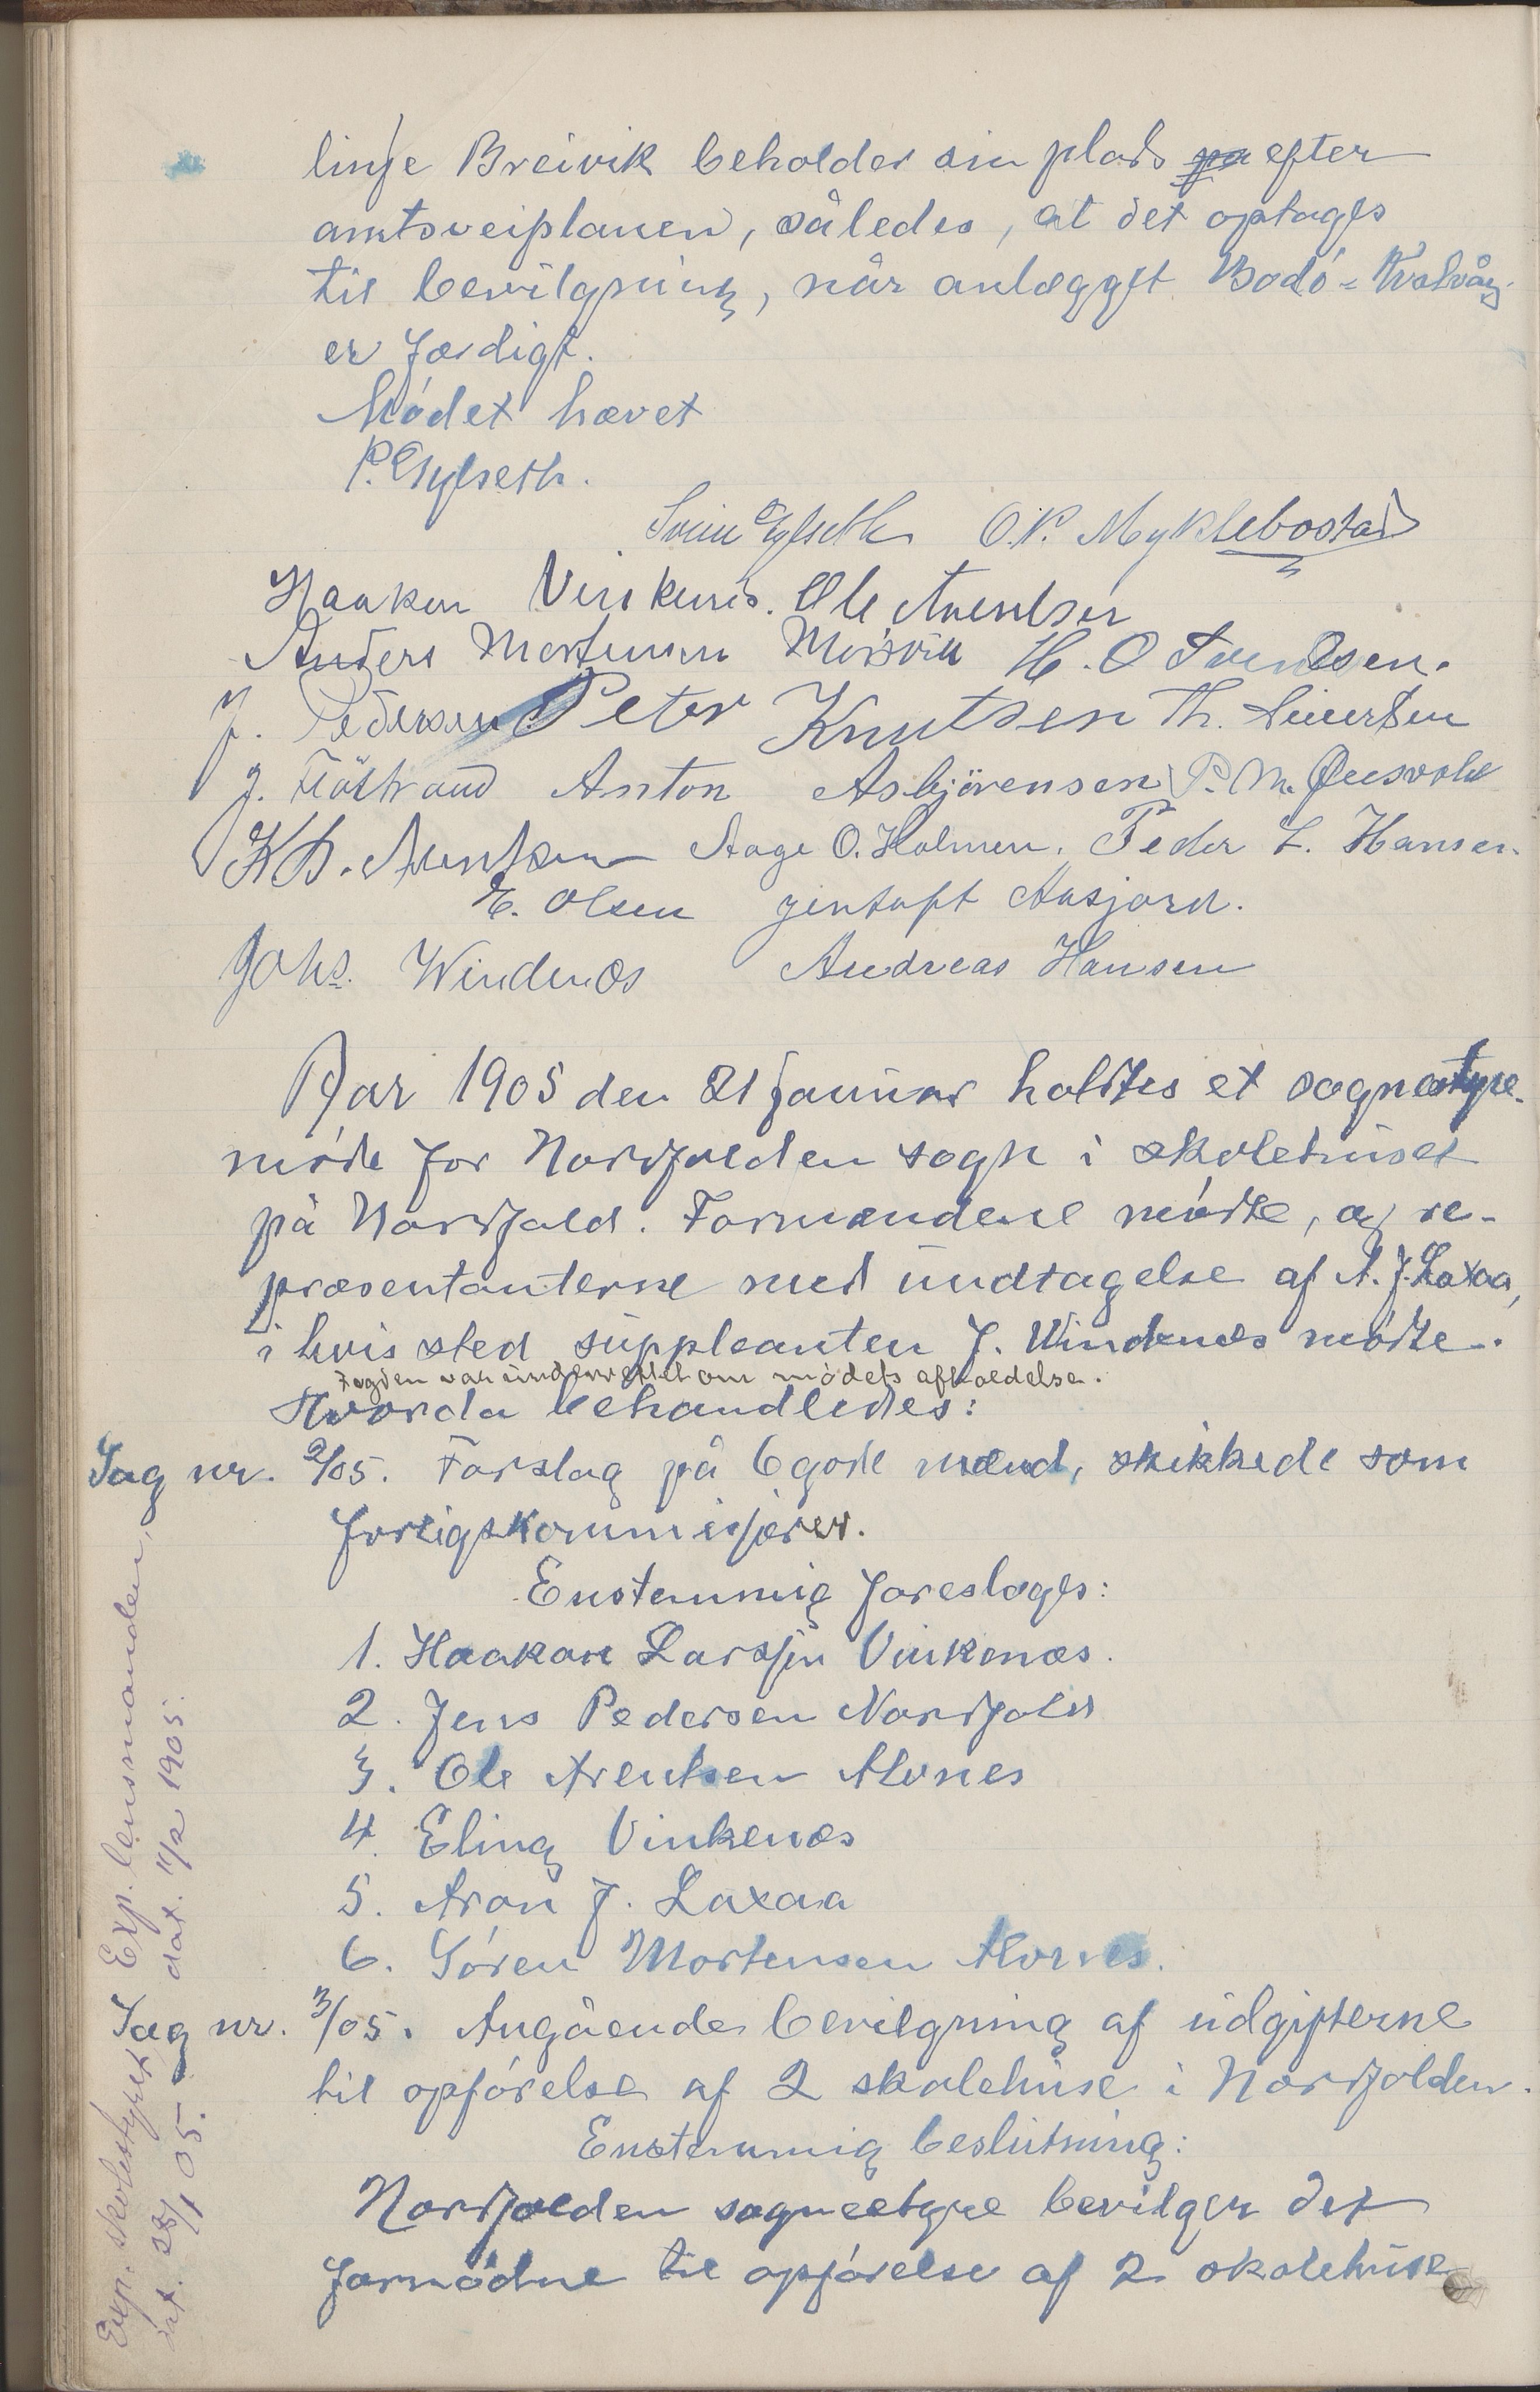 linje Breivik beholder sin plads på efter
amtsveiplanen, således, at det optages
til bevilgning, når anlægget Bodó-Kvalvåg
er færdigt.
Módet hævet
P. Gylseth.
Svein Gylseth O.P. Myklebostad
Haakon Vinkenæs. Ole Arentsen
Anders Mortensen Mørsvik H. O Svendsen.
J. Pedersen Peter Knutsen Th. Sivertsen
J. Flöstrand Anton Asbjörensen P. M.
K D. Arentsen Aage O. Holmen. Peder L. Hansen.
E. Olsen Jentoft Aasjord.
Johs. Windenæs Andreas Hansen
År 1905 den 21 januar holdtes et sognestyre-
móde for Nordfolden sogn i skolehuset
på Nordfold. Formændene módte, og re-
præsentanterne med undtagelse af A. J. Laxaa,
i hvis sted suppleanten J. Windenæs módte.
Fogden var underrettet om módets afholdelse.
Hvorda behandledes:
Sag nr. 2/05. Forslag på 6 gode mænd, skikkede som
forligskommisjærer.
Enstemmig foreslåges:
1. Haakon Larsen Vinkenæs.
2. Jens Pedersen Nordfold
3. Ole Arentsen Movnes
4. Eling Vinkenæs
5. Aron J. Laxaa
6. Sóren Mortensen Movnes.
Exp. lensmanden,
dat. 11/2 1905.
Sag nr. 3/05. Angående bevilgning af udgifterne
til opfórelse af 2 skolehuse i Nordfolden.
Enstemmig beslutning:
Nordfolden sognestyre bevilger det
fornódne til opfórelse af 2 skolehuse
Exp. skolestyret
dat. 28/1 05.